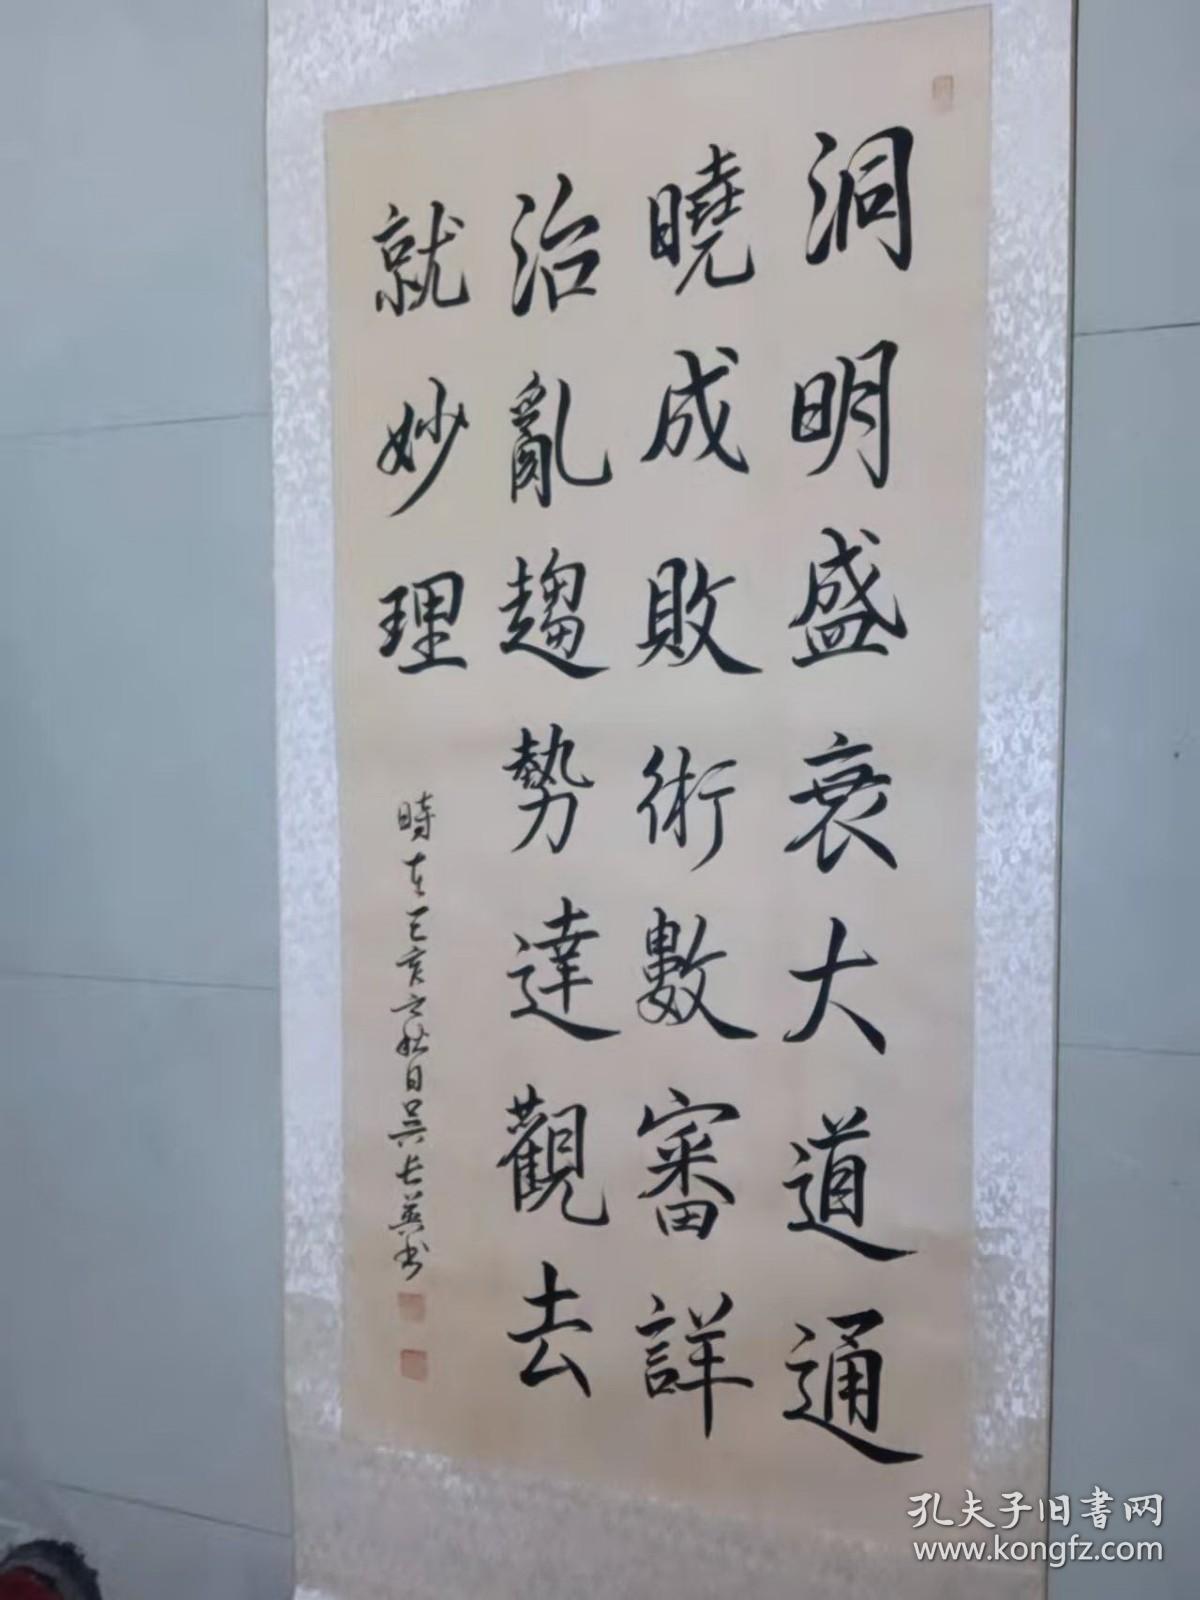 洞明盛衰大道通
曉成敗術數審詳
治亂趨勢達觀去
就妙理
時在己亥之秋日吳長英书
孔夫子旧書网
www.kongfz.com